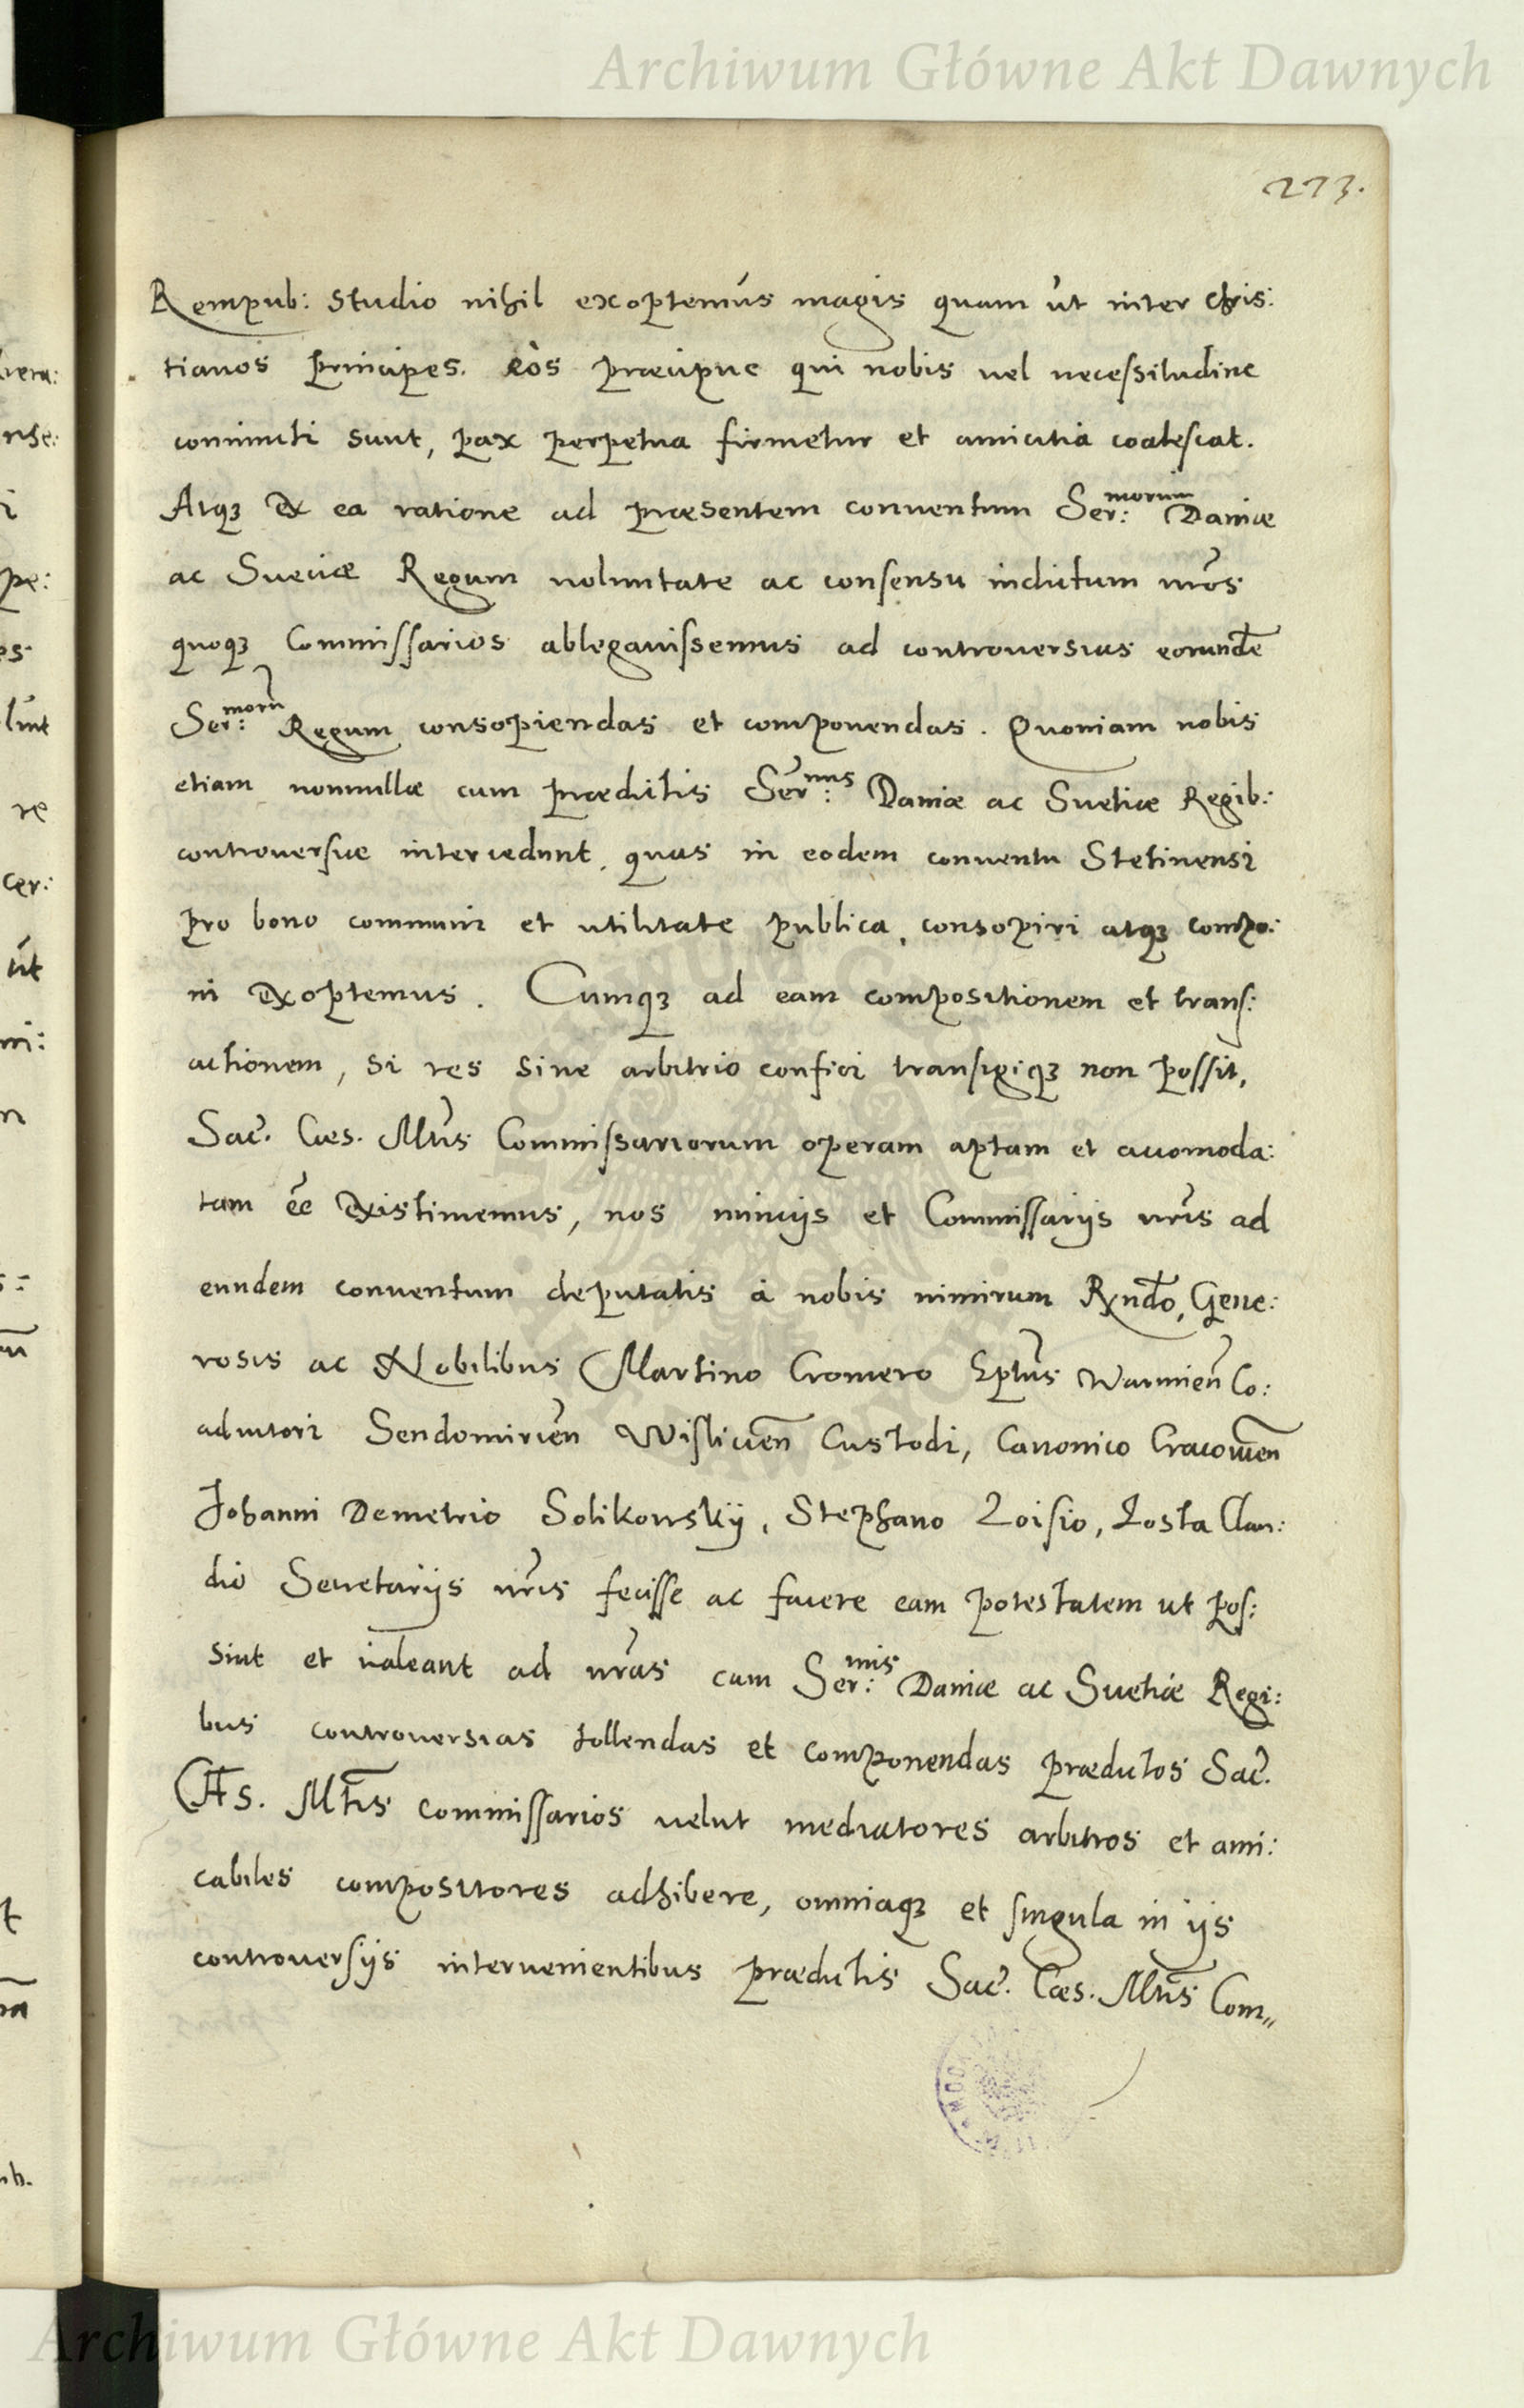 Archiwum Główne Akt Dawnych
273.
Rempub: studio nihil exoptemus magis quam ut inter Chris:
tianos principes. eos præcipue qui nobis vel necessitudine
coniuncti sunt, pax perpetua firmetur et amicitia coalescat.
Atqꝫ ex ea ratione ad præsentem conventum Ser:morum Daniæ
ac Sveciæ Regum voluntate ac consensu indictum nr̃os
quoqꝫ Commissarios ablegavissemus ad controversias eorundē
Ser:morū Regum consopiendas et componendas. Quoniam nobis
etiam nonnullæ cum prædictis Ser:mis Daniæ ac Suetiæ Regib:
controversiæ intercedunt, quas in eodem conventu Stetinensi
pro bono communi et utilitate publica, consopiri atqꝫ compo:
ni exoptemus. Cumqꝫ ad eam compositionem et trans:
actionem, si res sine arbitrio confici transigiqꝫ non possit,
Sac̃. Cæs. Mtis Commissariorum operam aptam et accomoda:
tam ēe existimemus, nos nuncijs et Commissarijs nr̃is ad
eundem conventum deputatis à nobis nimirum Rx̃ndo, Gene:
rosis ac Nobilibus Martino Cromero Ep̃tus Warmieñ Co:
adiutori Sendomirieñ Wisliceñ Custodi, Canonico Cracovieñ
Johanni Demetrio Solikovskÿ, Stephano Loisio, Josta Clau:
dio Secretarijs nr̃is fecisse ac facere eam potestatem ut pos:
sint et valeant ad nr̃as cum Ser:mis Daniæ ac Suetiæ Regi:
bus controversias tollendas et componendas prædictos Sac̃.
CÆs. Mtis commissarios velut mediatores arbitros et ami:
cabiles compositores adhibere, omniaqꝫ et singula in ijs
controversijs intervenientibus prædictis Sac̃. Cæs. Mtis Com„
Archiwum Główne Akt Dawnych